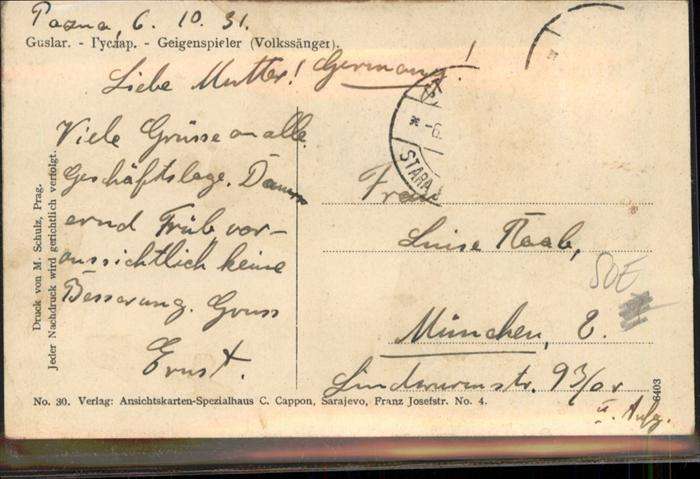 Pazna, 6. 10. 31.
Guslar. - Гуслар. - Geigenspieler (Volkssänger).
Liebe Mutter! Germany!
Viele Grüsse an alle.
Geschäftslage. Dau
ernd Trüb vor-
aussichtlich keine
Besserung. Gruss
Ernst.
Frau
Luise Raab,
München, 2.
Lindwurmstr. 93/0r
II. Aufg.
SOE
STARA
6.
Druck von M. Schulz, Prag.
Jeder Nachdruck wird gerichtlich verfolgt.
No. 30. Verlag: Ansichtskarten-Spezialhaus C. Cappon, Sarajevo, Franz Josefstr. No. 4.
6403